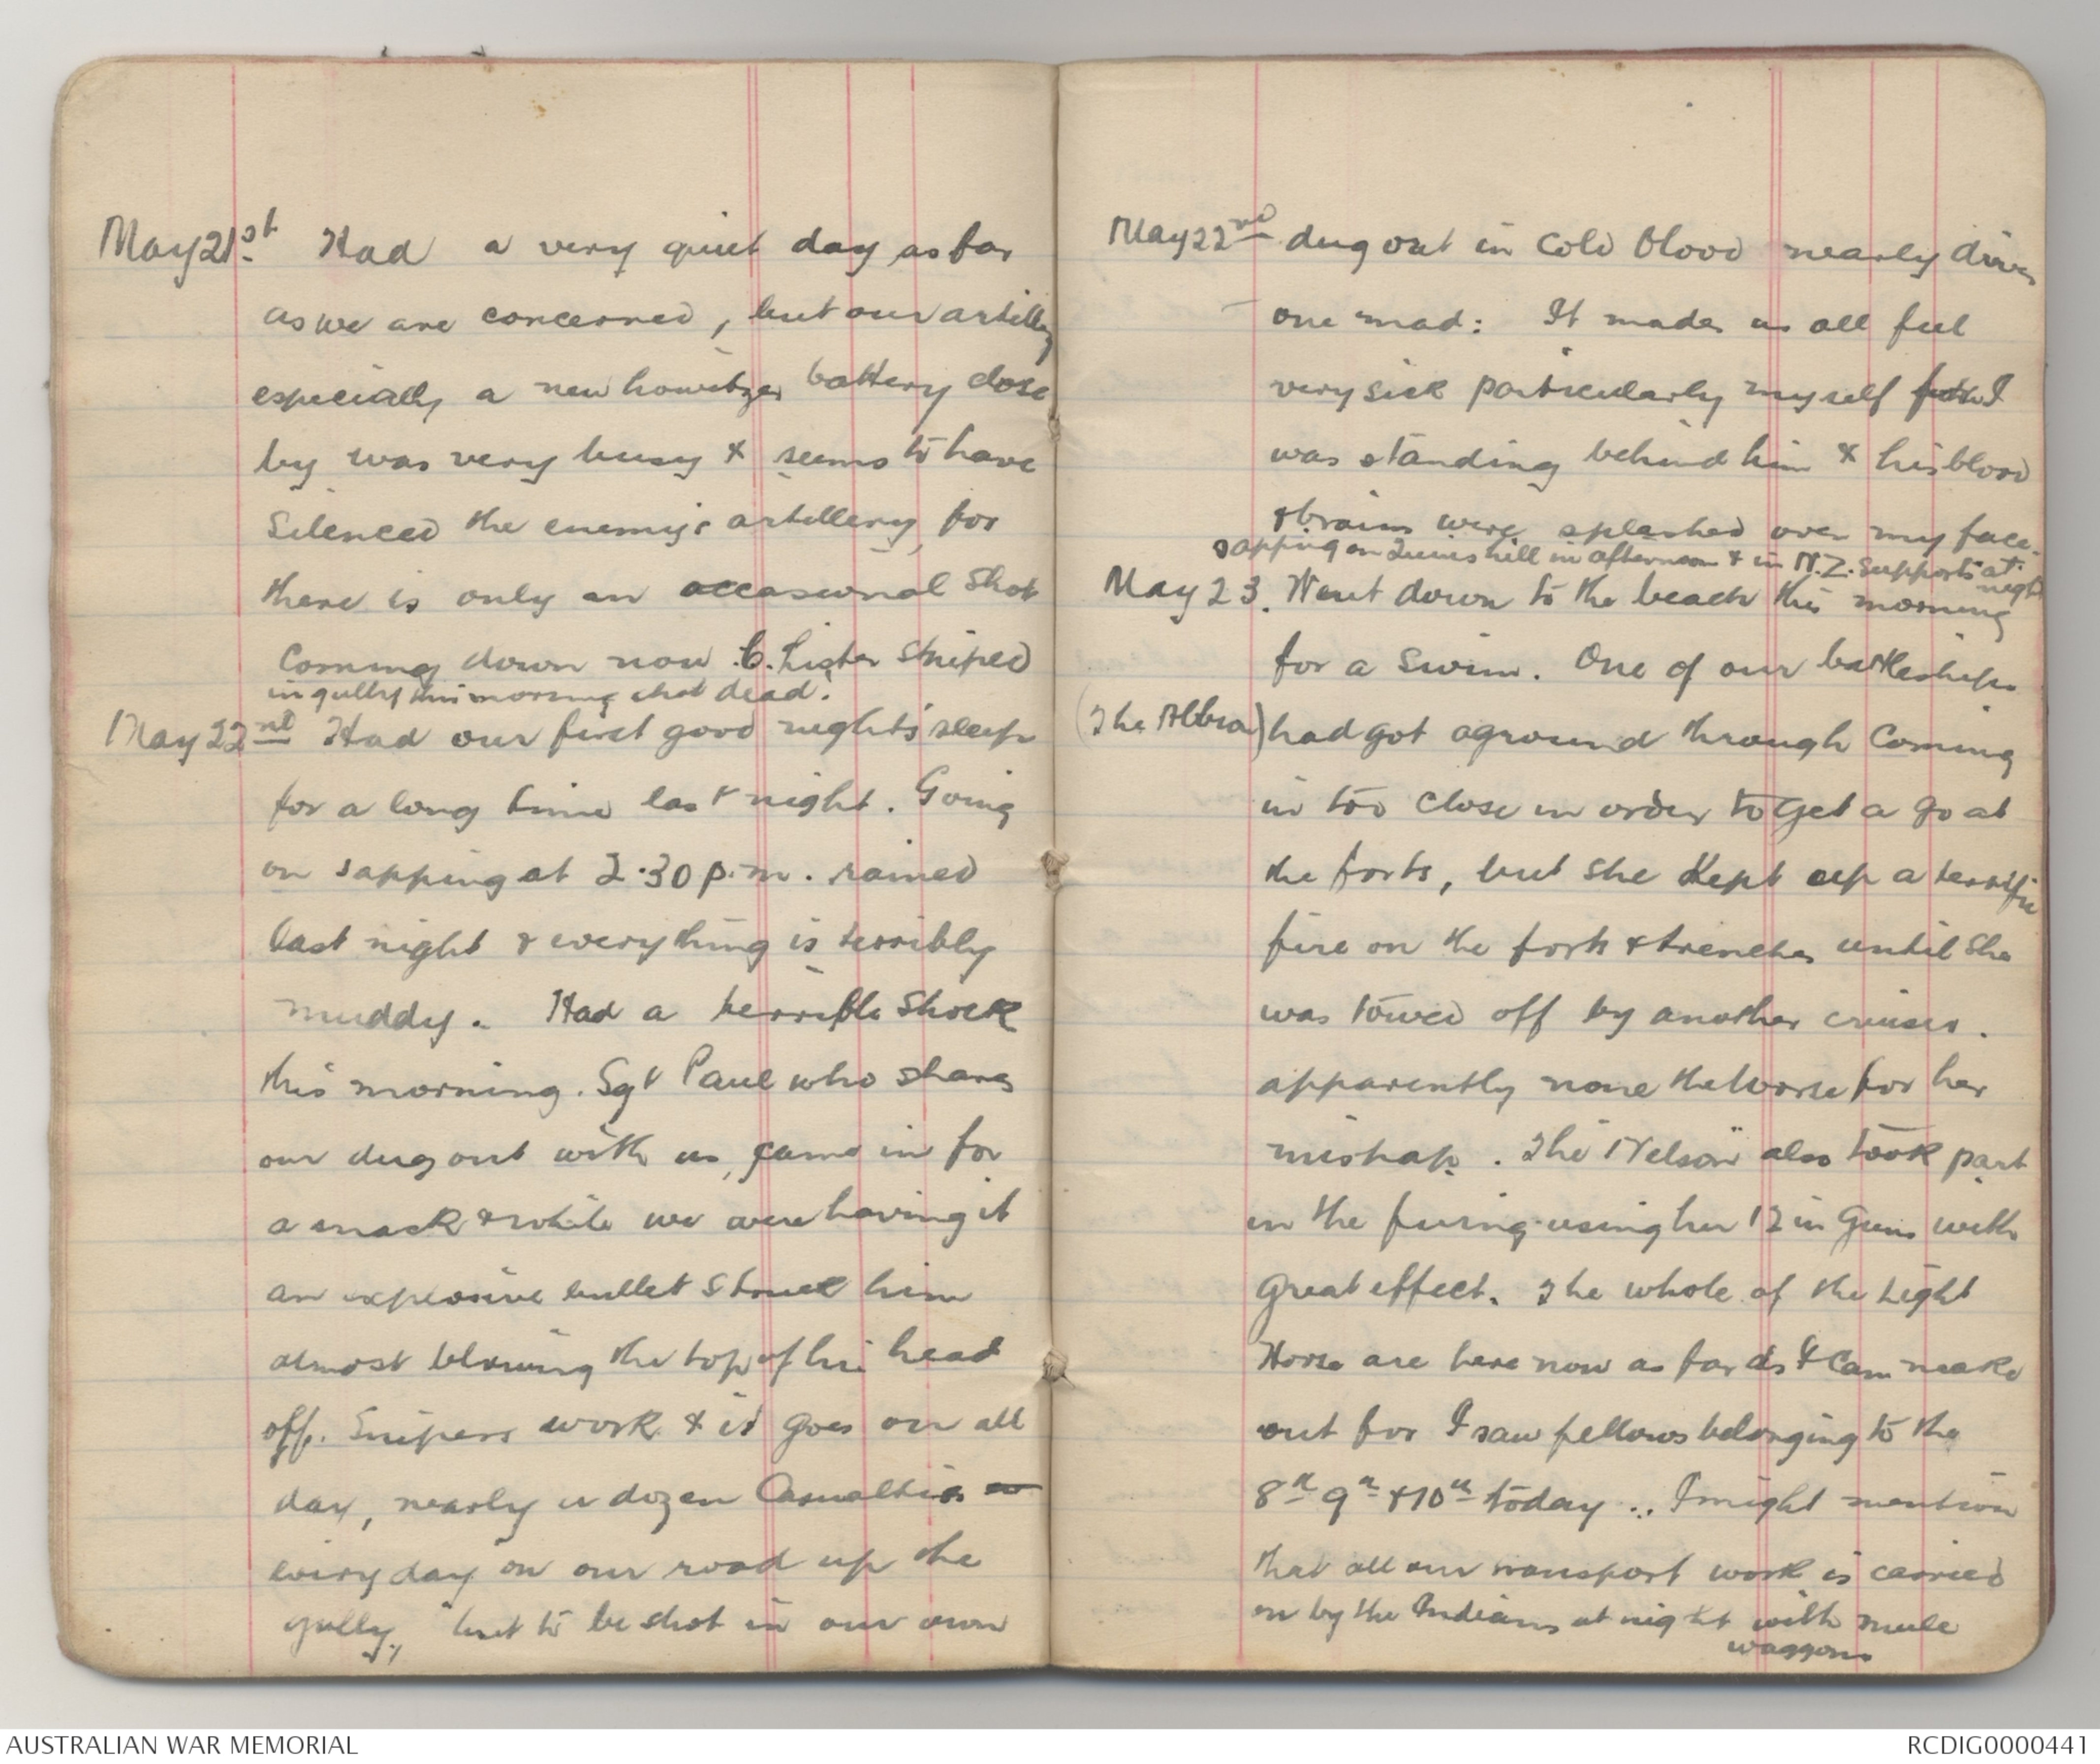 May 21st. Had a very quiet day as far
as we are concerned, but our artillery
especially a new howitzer battery close
by was very busy & seems to have
silenced the enemy's artillery, for
there is only an occasional shot
coming down now. C. Lister sniped
in gully this morning shot dead.
May 22nd Had our first good nights' sleep
for a long time last night. Going
on sapping at 2.30 p.m. rained
last night & everything is terribly
muddy. Had a terrible shock
this morning. Sgt Paul who shares
our dug out with us, came in for
a snack & while we were having it
an explosive bullet struck him
almost blowing the top of his head
off. Snipers work & it goes on all
day, nearly a dozen casualties
every day on our road up the
gully, but to be shot in our own
May 22nd dug out in cold blood nearly drives
one mad: It made us all feel
very sick particularly myself for I
was standing behind him & his blood
& brains were splashed over my face.
sapping on Quins hill in afternoon & in N.Z. supports at
night
May 23. Went down to the beach this morning
for a swim. One of our battleships
(The Albion) had got aground through coming
in too close in order to get a go at
the forts, but she kept up a terrific
fire on the forts & trenches until she
was towed off by another cruiser.
apparently none the worse for her
mishap. The Nelson" also took part
in the firing using her 12 in guns with
great effect. The whole of the Light
Horse are here now as far as I can make
out for I saw fellows belonging to the
8th 9th & 10th today .. I might mention
that all our transport work is carried
on by the Indians at night with mule
waggons
AUSTRALIAN WAR MEMORIAL
RCDIG0000441